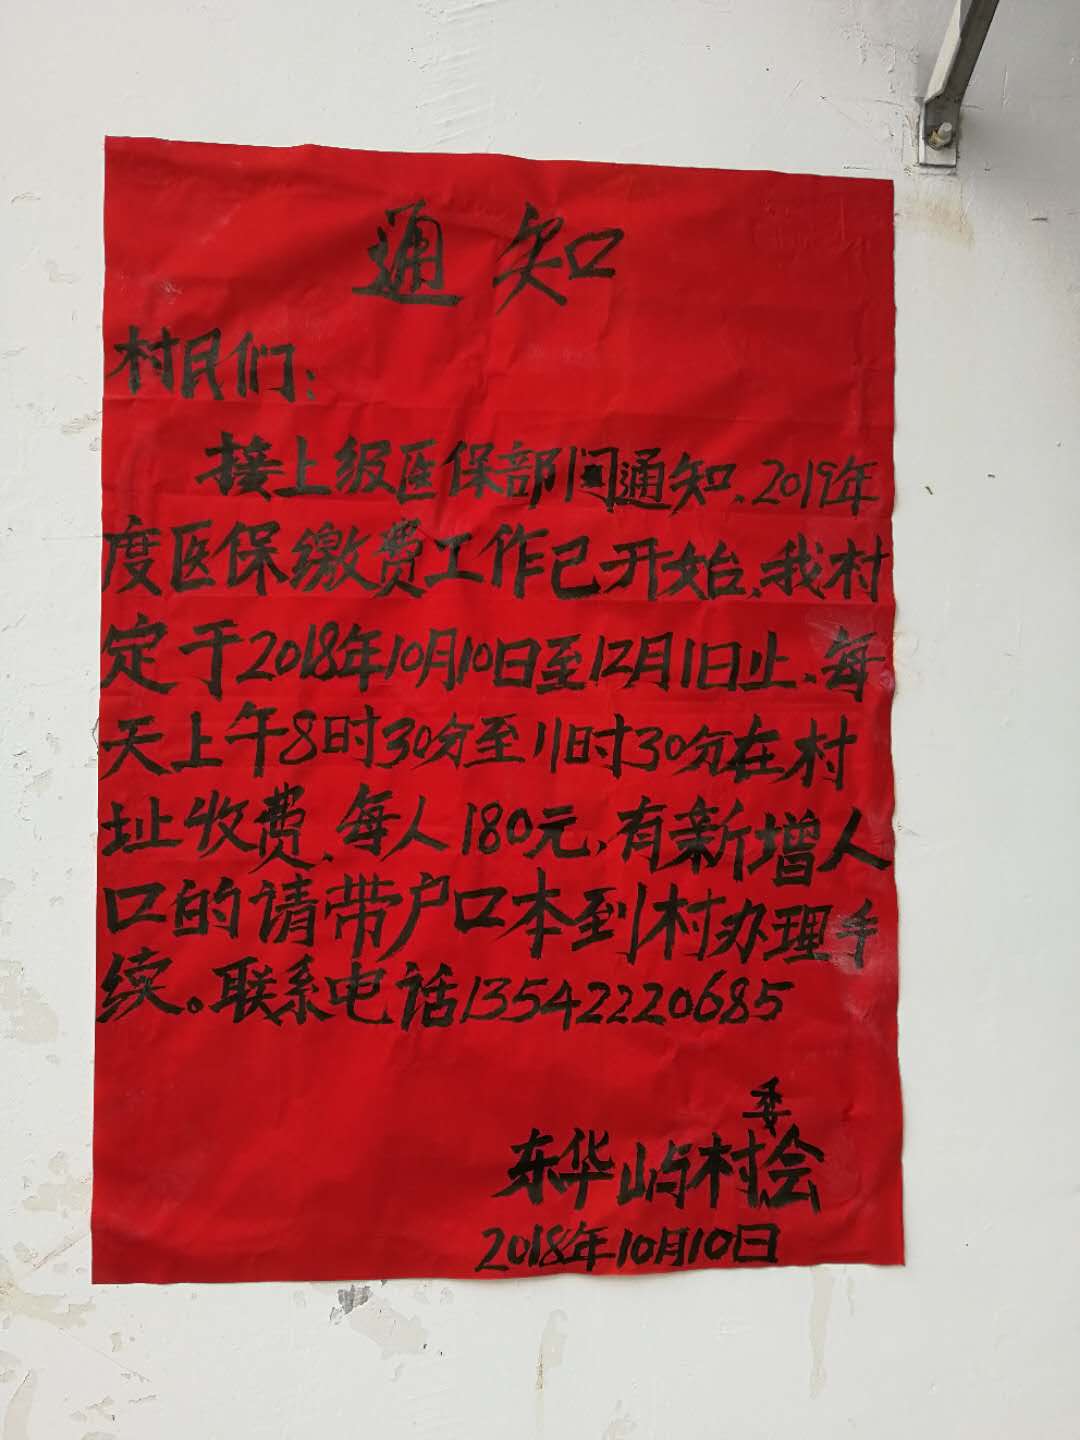 通知
村民们：
接上级医保部门通知、2019年
度医保缴费工作已开始、我村
定于2018年10月10日至12月1日止、每
天上午8时30分至11时30分在村
址收费、每人180元，有新增人
口的请带户口本到村办理手
续。联系电话13542220685
东华屿村委会
2018年10月10日